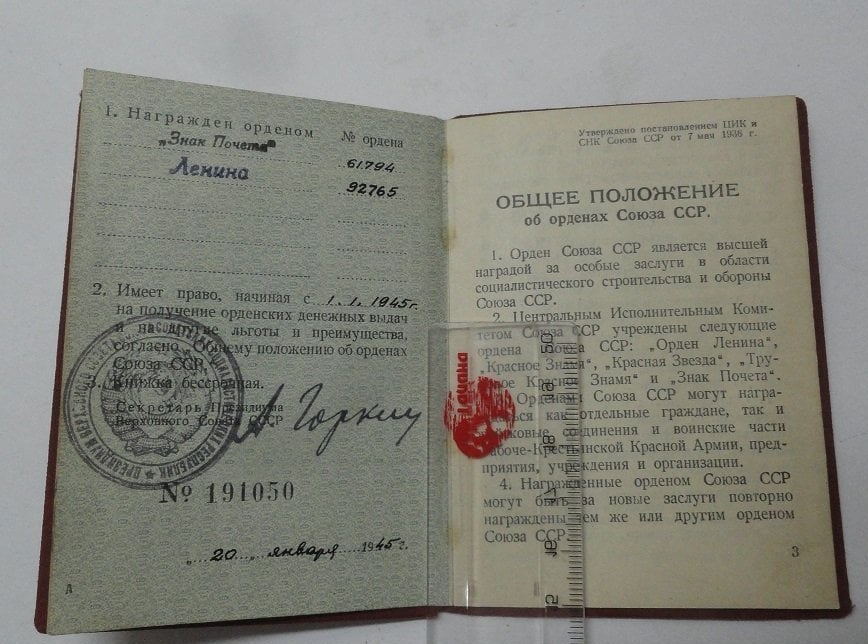 1. Награжден орденом № ордена
„Знак Почета" 61794
Ленина 92765
2. Имеет право, начиная с 1.1.1945г.
на получение орденских денежных выдач
и на другие льготы и преимущества,
согласно Общему положению об орденах
Союза ССР.
3. Книжка бессрочная.
Секретарь Президиума
Верховного Совета СССР
А Горкин
№ 191050
„ 20 „ января 1945 г.
А
Утверждено постановлением ЦИК и
СНК Союза ССР от 7 мая 1936 г.
ОБЩЕЕ ПОЛОЖЕНИЕ
об орденах Союза ССР.
1. Орден Союза ССР является высшей
наградой за особые заслуги в области
социалистического строительства и обороны
Союза ССР.
2. Центральным Исполнительным Коми-
тетом Союза ССР учреждены следующие
ордена Союза ССР: „Орден Ленина",
„Красное Знамя", „Красная Звезда", „Тру-
Красное Знамя" и „Знак Почета".
Орденами Союза ССР могут награ-
как отдельные граждане, так и
соединения и воинские части
Рабоче-Крестьянской Красной Армии, пред-
приятия, учреждения и организации.
4. Награжденные орденом Союза ССР
могут быть за новые заслуги повторно
награждены тем же или другим орденом
Союза ССР.
3